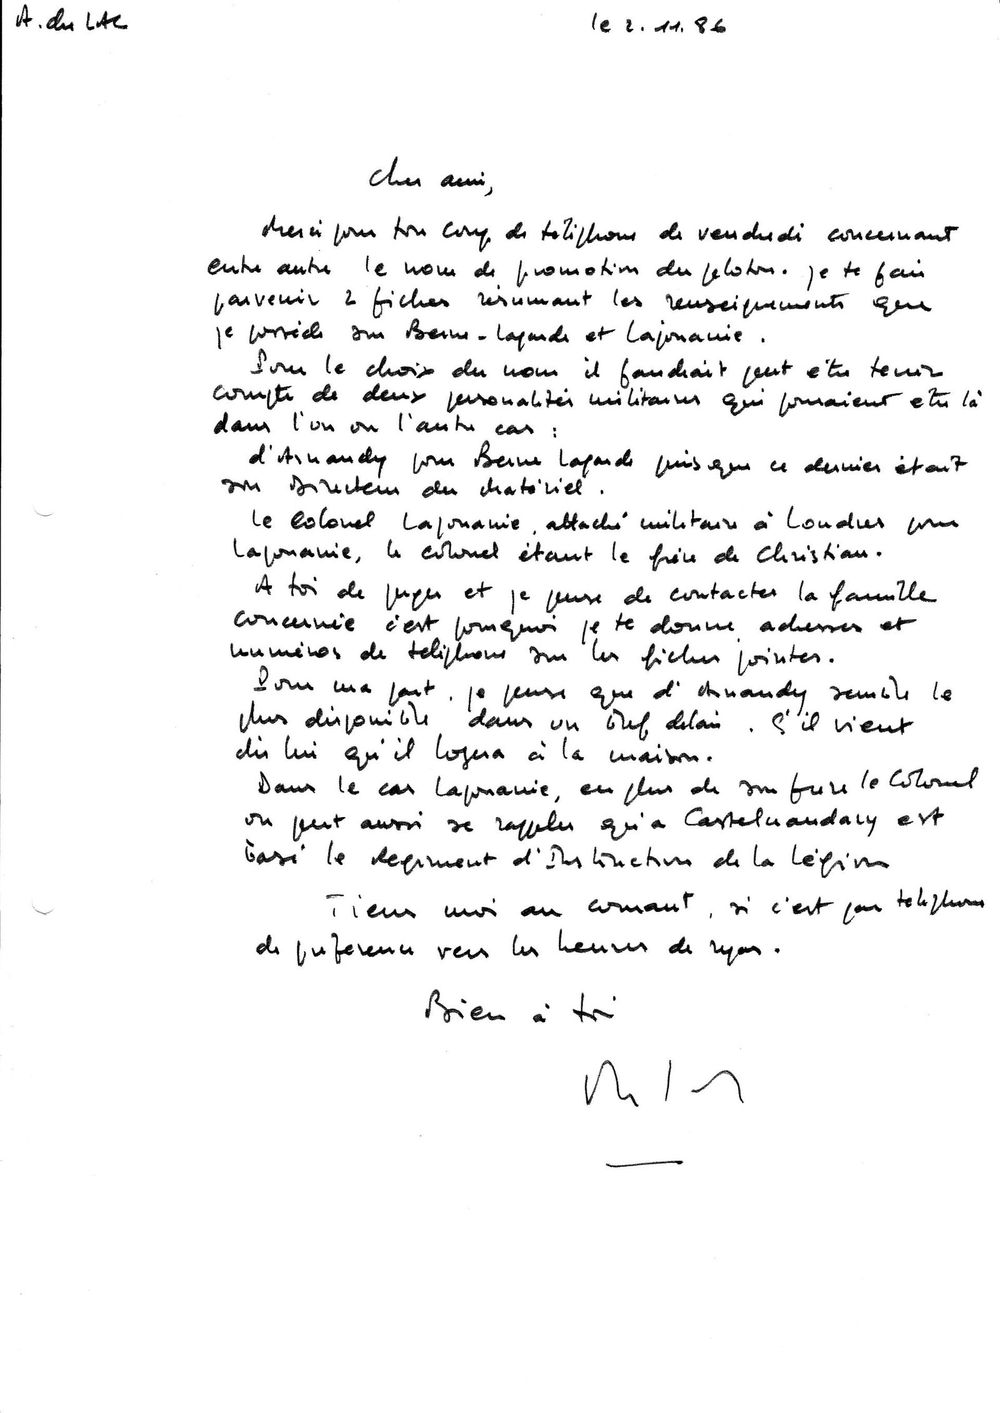 A. du LAC
le 2.11.86
Cher ami,
Merci pour ton coup de téléphone de vendredi concernant
entre autre le nom de promotion du peloton. je te fais
parvenir 2 fiches résumant les renseignements que
je possède sur Berne-Lagarde et Lajouanie.
Pour le choix du nom il faudrait peut être tenir
compte de deux personalités militaires qui pourraient etre là
dans l'un ou l'autre cas :
d'Arnaudy pour Berne Lagarde puisque ce dernier était
son Directeur du Matériel.
Le Colonel Lajouanie, attaché militaire à Londres pour
Lajouanie, le colonel étant le frère de Christian.
A toi de juger et je pense de contacter la famille
concernée c'est pourquoi je te donne adresses et
numéros de téléphone sur les fiches jointes.
Pour ma part, je pense que d'Arnaudy semble le
plus disponible dans un bref délai. S'il vient
dis lui qu'il logera à la maison.
Dans le cas Lajouanie, en plus de son frère le Colonel
on peut aussi se rappeler qu'a Castelnaudary est
basé le Régiment d'Instruction de la Légion
Tiens moi au courant, si c'est par téléphone
de préférence vers les heures de repas.
Bien à toi